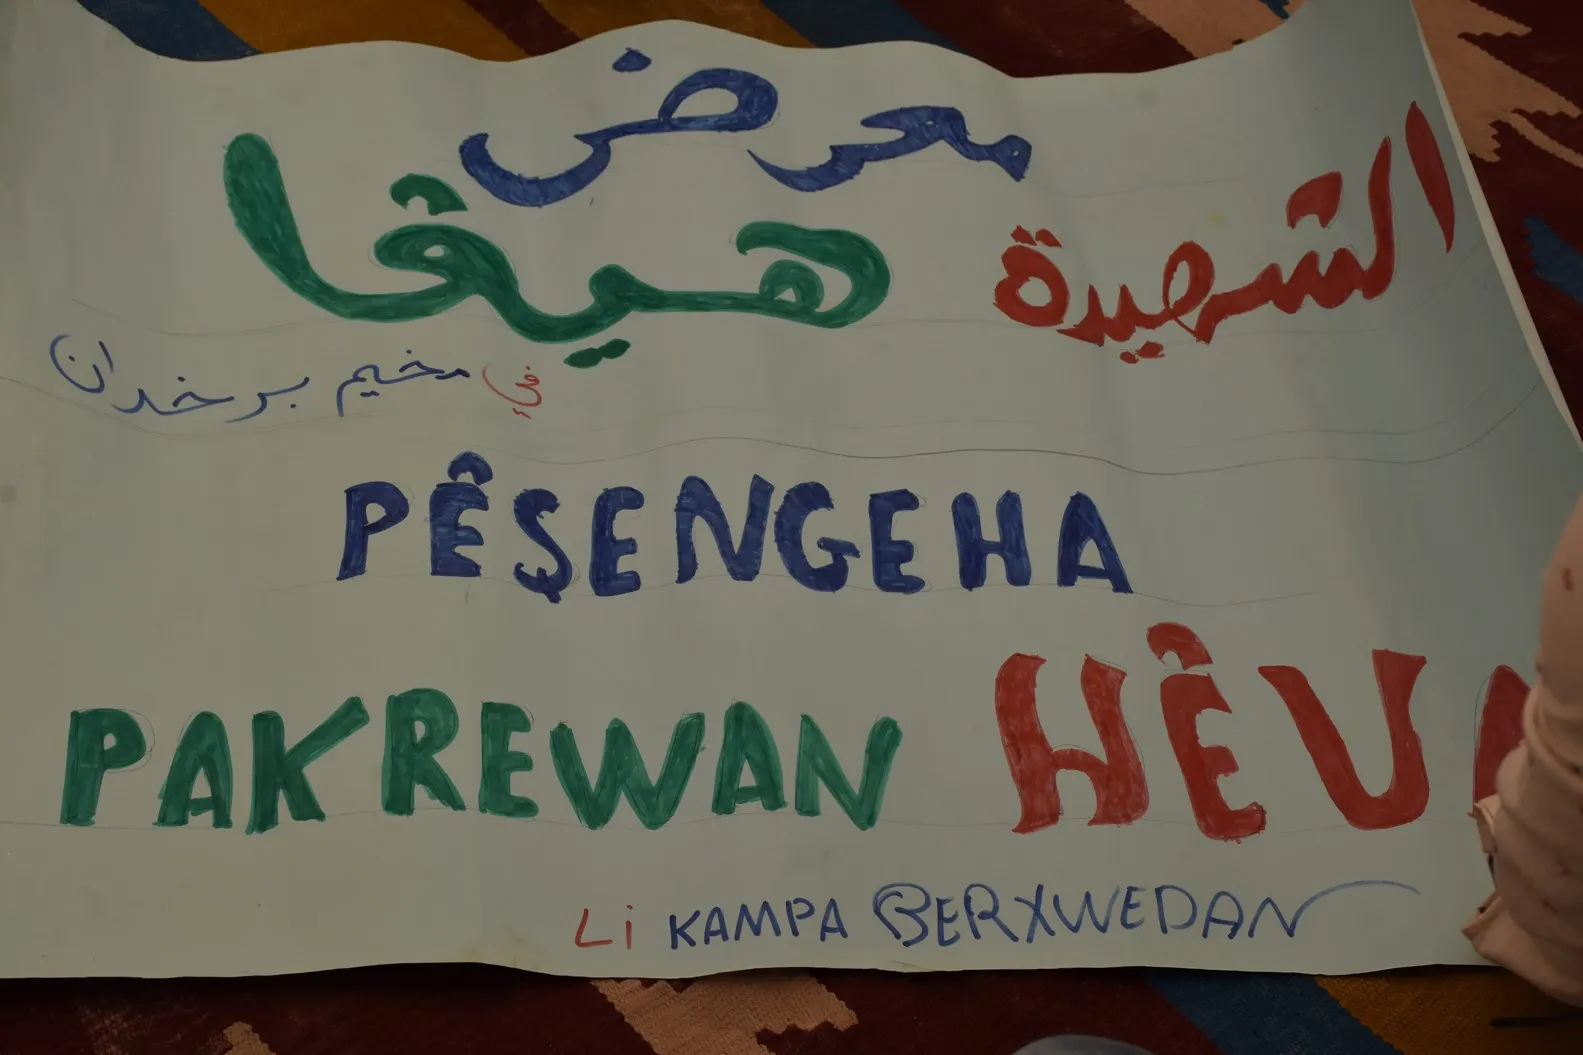 معرض
الشهيدة هيڤا
في مخيم برخدان
PÊŞENGEHA
PAKREWAN HÊV
Li KAMPA BERXWEDAN